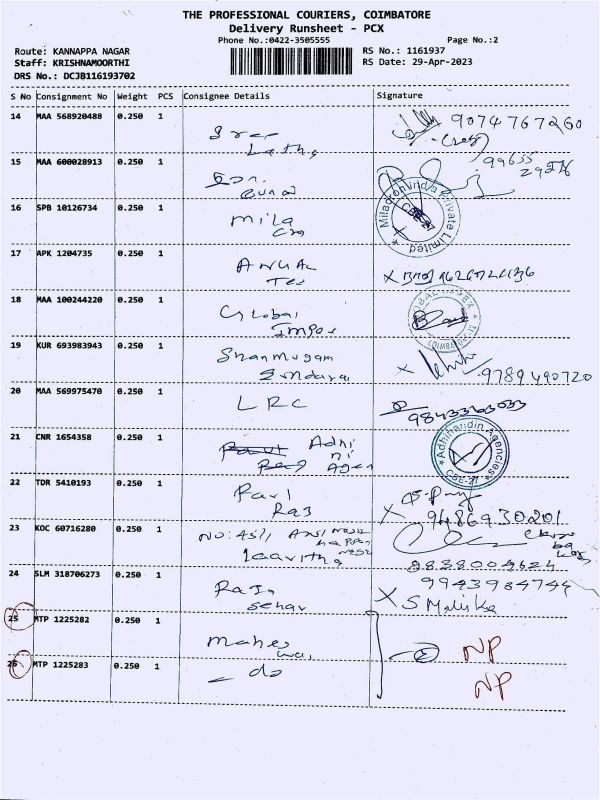 THE PROFESSIONAL COURIERS, COIMBATORE
Delivery Runsheet - PCX
Phone No.:0422-3505555 Page No.:2
Route: KANNAPPA NAGAR RS No.: 1161937
Staff: KRISHNAMOORTHI RS Date: 29-Apr-2023
DRS No.: DCJB116193702
S No Consignment No Weight PCS Consignee Details Signature
14 MAA 568920488 0.250 1
Sree 9074767260
Latha
15 MAA 600028913 0.250 1 99655
16 SPB 10126734 0.250 1
Mila Miladron India Private Limited
CBE-27
17 APK 1204735 0.250 1
Tex
18 MAA 100244220 0.250 1
Global
Impex
19 KUR 693983943 0.250 1
Shanmugam 9789490720
20 MAA 569975470 0.250 1
LRC
21 CNR 1654358 0.250 1
Adhi
ni
Agen
Adhinandin Agencies
CBE-27
22 TDR 5410193 0.250 1
Paul
Raj 9486930201
23 KOC 60716280 0.250 1
No:45/1
24 SLM 318706273 0.250 1 9943984744
Raja
Sekar
25 MTP 1225282 0.250 1
Mahes
NP
26 MTP 1225283 0.250 1
- do
NP